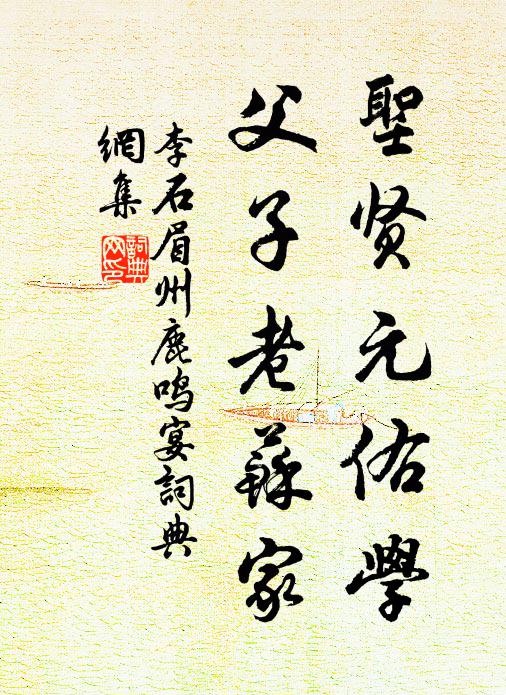 聖贤元佑學
父子老蘇家
李石眉州鹿鳴宴詞典
網集
詞典
网印